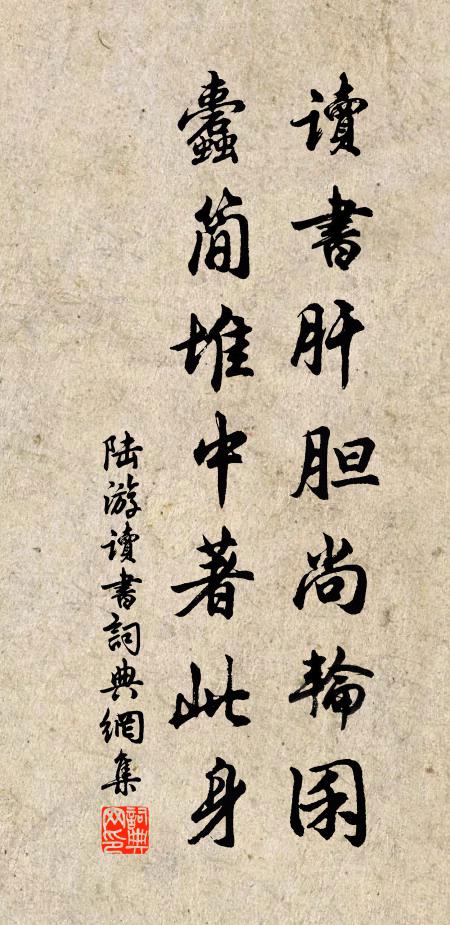 讀書肝胆尚輪囷
蠹简堆中著此身
陆游讀書詞典網集
詞典網印